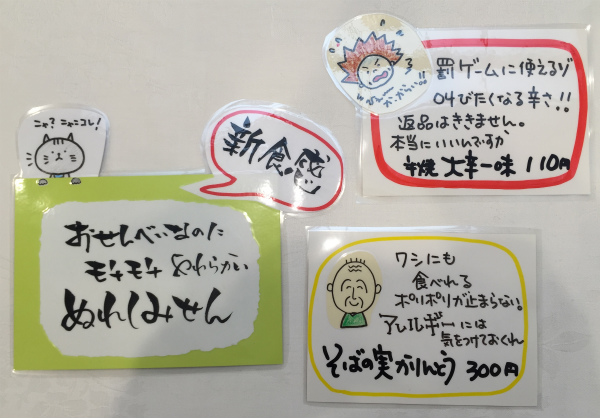 新食感
おせんべいなのに
モチモチ やわらかい
ぬれしみせん
罰ゲームに使えるゾ
叫びたくなる辛さ!!
返品はききません。
本当にいいんですか
手焼 大辛一味 110円
ワシにも
食べれる
ポリポリが止まらない。
アレルギーには
気をつけておくれ
そばの実かりんとう 300円